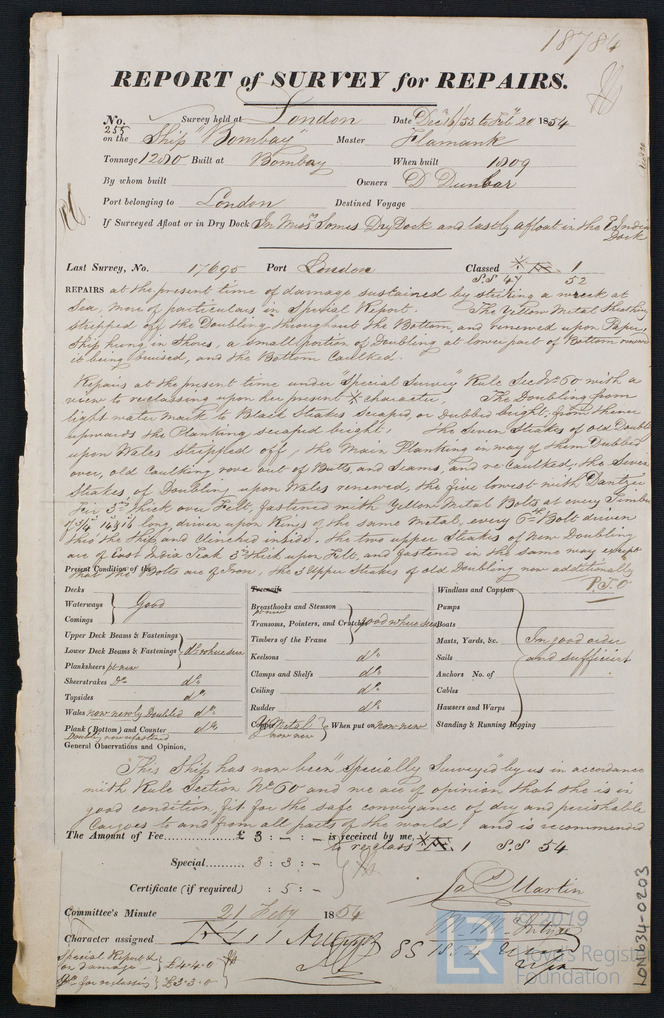 18784
REPORT of SURVEY for REPAIRS.
No. 255 Survey held at London Date Decr 16/53 to Feby 20 1854
on the Ship "Bombay" Master Flamank
Tonnage 1280 Built at Bombay When built 1809
By whom built Owners D Dunbar
Port belonging to London Destined Voyage
If Surveyed Afloat or in Dry Dock In Messrs Somes Dry Dock and lastly afloat in the E India Dock
Last Survey, No. 17695 Port London Classed 1
S.S 47 52
REPAIRS at the present time of damage sustained by striking a wreck at
Sea, more of particulars in Special Report. The Yellow Metal Sheathing
stripped off the Doubling throughout the Bottom, and renewed upon Paper,
Ship hung in Shores, a small portion of Doubling at lower part of Bottom renewed
it being bruised, and the Bottom Caulked.
Repairs at the present time under "Special Survey" Rule Sec No 60 with a
view to reclassing upon her present character. The Doubling from
light water mark to Black Strakes scraped or dubbed bright, from thence
upwards the Planking scraped bright, The Seven Strakes of old Double
upon Wales stripped off, the Main Planking in way of them Dubbed
over, old Caulking rove out of Butts, and Seams, and re Caulked, the Seven
Strakes of Doubling upon Wales renewed, the five lowest with Dantzic
Fir 3 in thick over Felt, fastened with Yellow Metal Bolts at every Timber
long, driven upon Rings of the same Metal, every 6th Bolt driven
thro the Ship and Clinched inside, the two upper Strakes of New Doubling
are of East India Teak 3 in thick upon Felt, and fastened in the same way except
that the Bolts are of Iron, the 3 Upper Strakes of old Doubling now additionally
P.T.O
Present Condition of the
Decks
Waterways Good
Comings
Upper Deck Beams & Fastenings
Lower Deck Beams & Fastenings do where seen
Planksheers pt new
Sheerstrakes Do do
Topsides
Wales now newly Doubled do
Plank (Bottom) and Counter do
Doubg now refastened
Treenails
Breasthooks and Stemson pt new
Transoms, Pointers, and Crutches good where seen
Timbers of the Frame
Keelsons do
Clamps and Shelfs do
Ceiling do
Rudder do
Copper Y Metal now new When put on now new
Windlass and Capstan
Pumps
Boats
Masts, Yards, &c. In good order
Sails and sufficient
Anchors No. of
Cables
Hausers and Warps
Standing & Running Rigging
General Observations and Opinion,
This Ship has now been "Specially Surveyed" by us in accordance
with Rule Section No 60 and we are of opinion that she is in
good condition, fit for the safe conveyance of dry and perishable
Cargoes to and from all parts of the world, and is recommended
The Amount of Fee £ 3 : - : - is received by me,
to reclass 1 S.S 54
Special 3 : 3 : -
Certificate (if required) : 5 : -
Jas Martin
Committee's Minute 21 Feby 1854
Character assigned
SS 1854
Special Report &
on damage £4.4.0
Do for reclassing £3.3.0
LON634-0203
LR
©2019
Lloyd's Register
Foundation